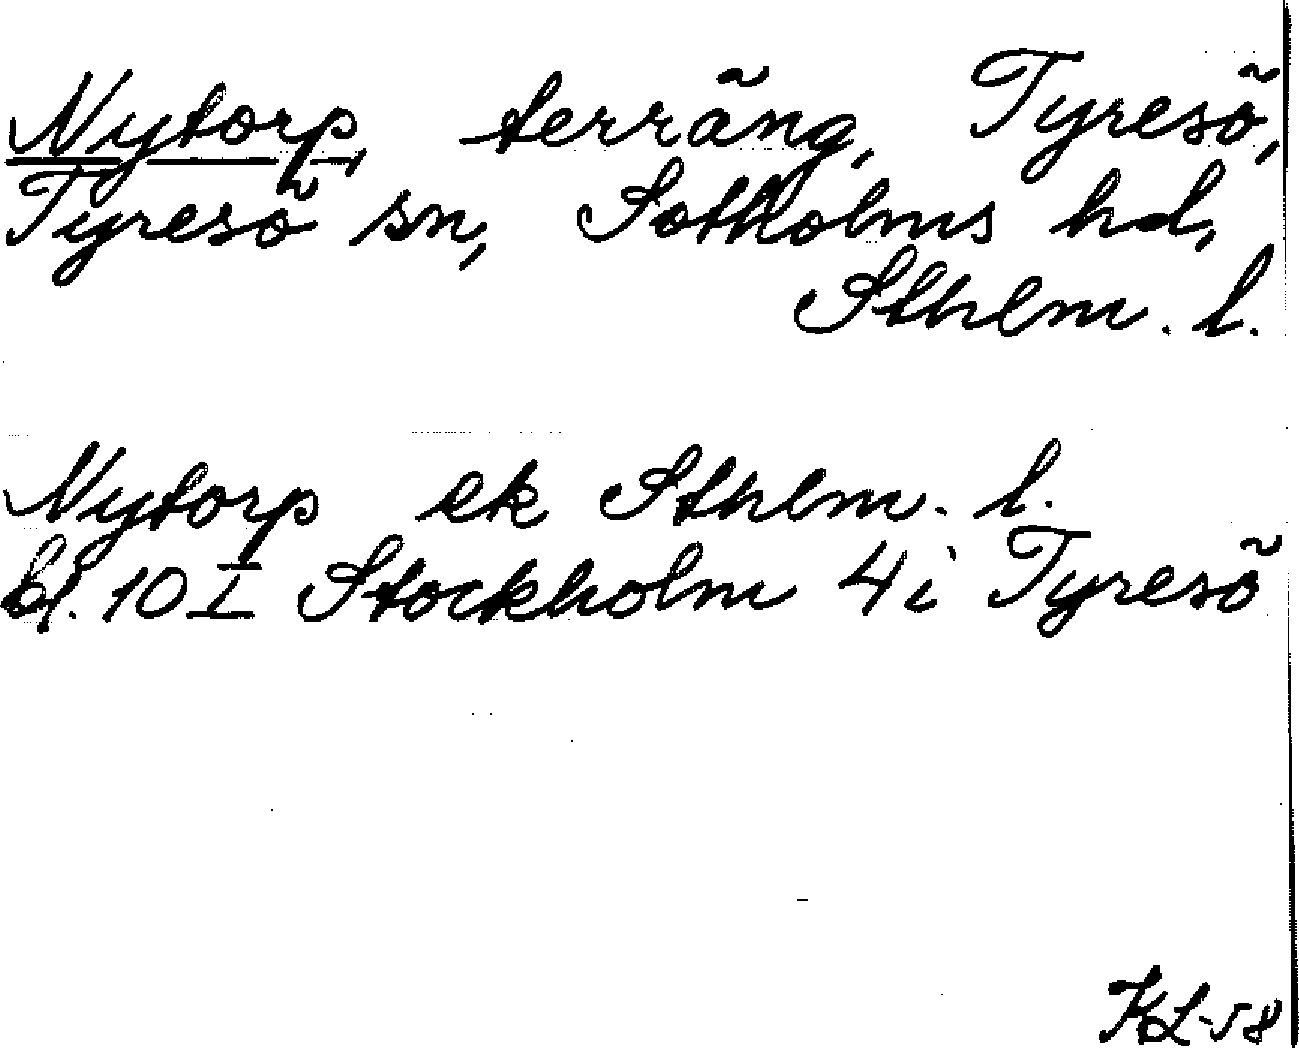 Nytorp, terräng, Tyresö,
Tyresö sn, Sotholms hd,
Sthlm. l.
Nytorp ek Sthlm. l.
bl. 10 I Stockholm 4 i Tyresö
KL-58